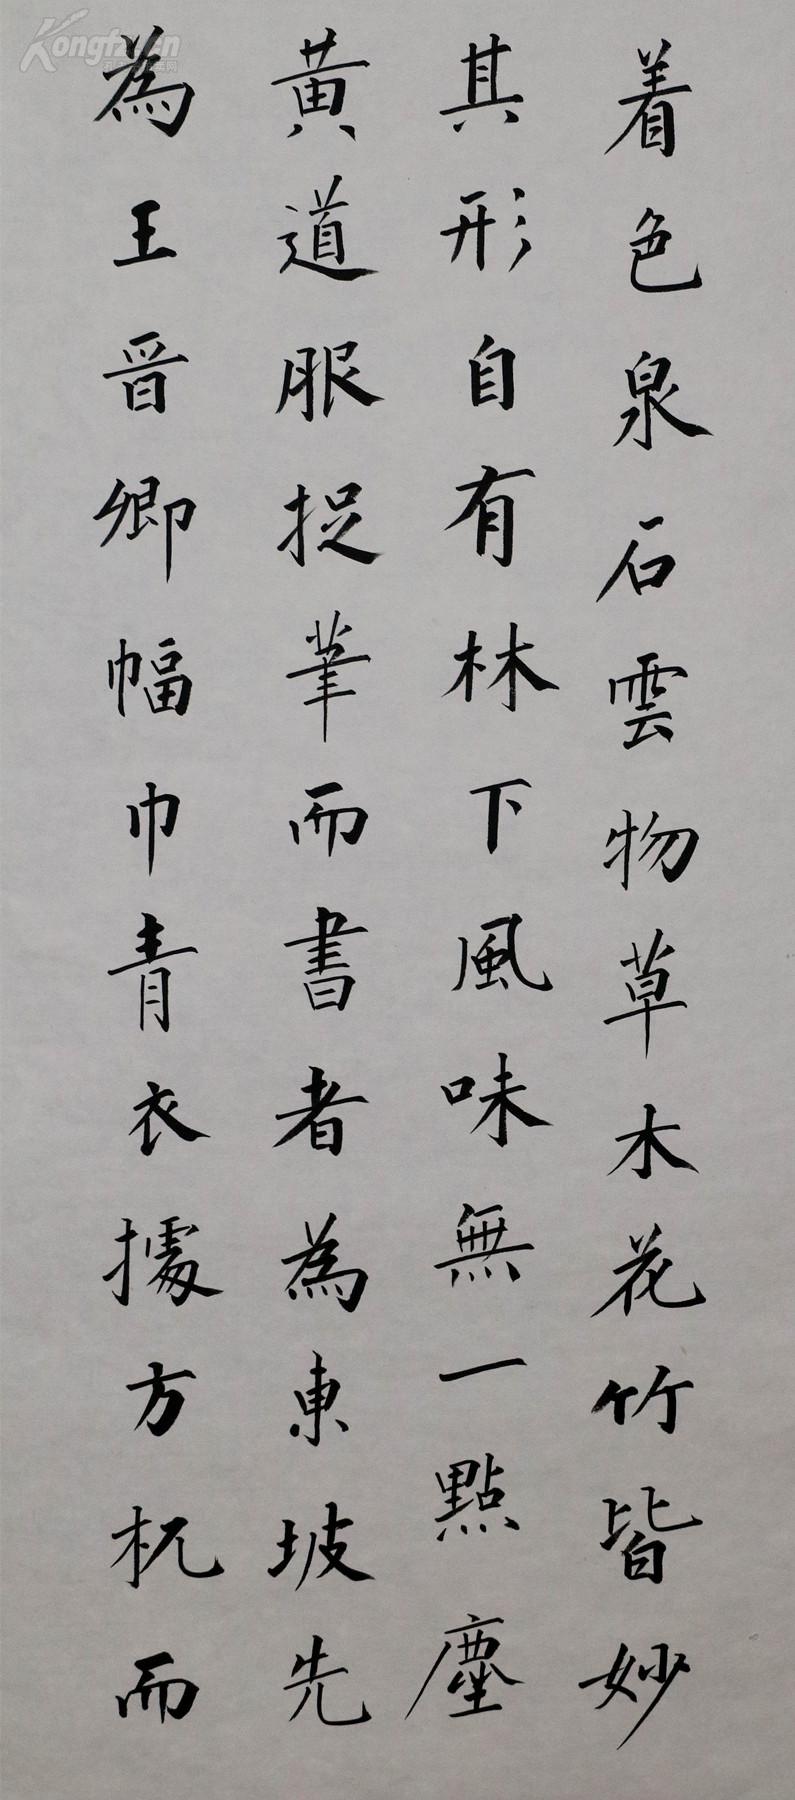 着色泉石雲物草木花竹皆妙
其形自有林下風味無一點塵
黃道服捉筆而書者為東坡先
為王晉卿幅巾青衣據方机而
Kongfz.cn